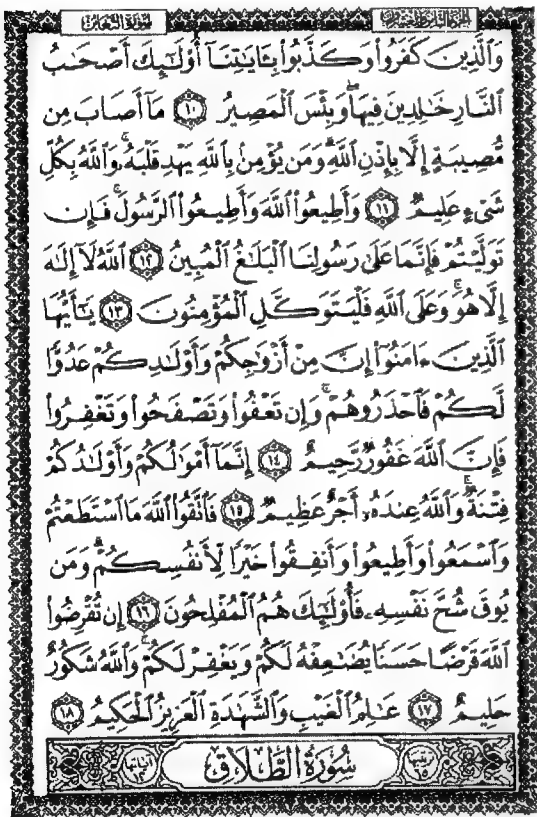 سُورَةُ التَّغَابُنِ الجُزْءُ الثَّامِنُ وَالعِشْرُونَ
وَٱلَّذِينَ كَفَرُوا۟ وَكَذَّبُوا۟ بِـَٔايَـٰتِنَآ أُو۟لَـٰٓئِكَ أَصْحَـٰبُ
ٱلنَّارِ خَـٰلِدِينَ فِيهَا ۖ وَبِئْسَ ٱلْمَصِيرُ ١٠ مَآ أَصَابَ مِن
مُّصِيبَةٍ إِلَّا بِإِذْنِ ٱللَّهِ ۗ وَمَن يُؤْمِنۢ بِٱللَّهِ يَهْدِ قَلْبَهُۥ ۚ وَٱللَّهُ بِكُلِّ
شَىْءٍ عَلِيمٌ ١١ وَأَطِيعُوا۟ ٱللَّهَ وَأَطِيعُوا۟ ٱلرَّسُولَ ۚ فَإِن
تَوَلَّيْتُمْ فَإِنَّمَا عَلَىٰ رَسُولِنَا ٱلْبَلَـٰغُ ٱلْمُبِينُ ١٢ ٱللَّهُ لَآ إِلَـٰهَ
إِلَّا هُوَ ۚ وَعَلَى ٱللَّهِ فَلْيَتَوَكَّلِ ٱلْمُؤْمِنُونَ ١٣ يَـٰٓأَيُّهَا
ٱلَّذِينَ ءَامَنُوٓا۟ إِنَّ مِنْ أَزْوَٰجِكُمْ وَأَوْلَـٰدِكُمْ عَدُوًّا
لَّكُمْ فَٱحْذَرُوهُمْ ۚ وَإِن تَعْفُوا۟ وَتَصْفَحُوا۟ وَتَغْفِرُوا۟
فَإِنَّ ٱللَّهَ غَفُورٌ رَّحِيمٌ ١٤ إِنَّمَآ أَمْوَٰلُكُمْ وَأَوْلَـٰدُكُمْ
فِتْنَةٌ ۚ وَٱللَّهُ عِندَهُۥٓ أَجْرٌ عَظِيمٌ ١٥ فَٱتَّقُوا۟ ٱللَّهَ مَا ٱسْتَطَعْتُمْ
وَٱسْمَعُوا۟ وَأَطِيعُوا۟ وَأَنفِقُوا۟ خَيْرًا لِّأَنفُسِكُمْ ۗ وَمَن
يُوقَ شُحَّ نَفْسِهِۦ فَأُو۟لَـٰٓئِكَ هُمُ ٱلْمُفْلِحُونَ ١٦ إِن تُقْرِضُوا۟
ٱللَّهَ قَرْضًا حَسَنًا يُضَـٰعِفْهُ لَكُمْ وَيَغْفِرْ لَكُمْ ۚ وَٱللَّهُ شَكُورٌ
حَلِيمٌ ١٧ عَـٰلِمُ ٱلْغَيْبِ وَٱلشَّهَـٰدَةِ ٱلْعَزِيزُ ٱلْحَكِيمُ ١٨
ترتيبها ٦٥ سُورَةُ الطَّلَاقِ آياتها ١٢